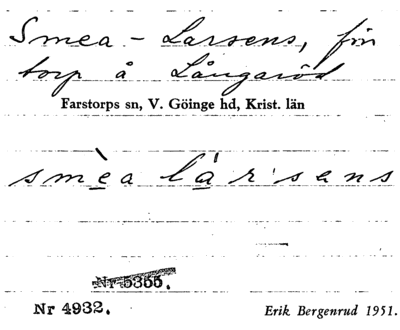 Smea - Larsens, fin
torp å Långaröd
Farstorps sn, V. Göinge hd, Krist. län
smèa lá̱r'sens
Nr 5355.
Nr 4932. Erik Bergenrud 1951.